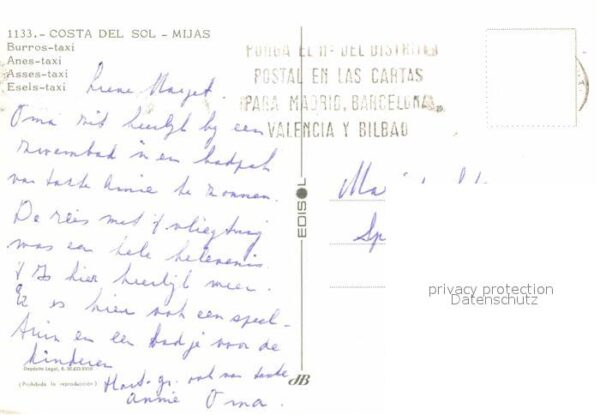 1133.- COSTA DEL SOL - MIJAS
Burros-taxi
Anes-taxi
Asses-taxi
Esels-taxi
PONGA EL Nº DEL DISTRITO
POSTAL EN LAS CARTAS
PARA MADRID, BARCELONA,
VALENCIA Y BILBAO
Oma zit heerlijk bij een
zwembad in een badpak
van tante Annie te zonnen.
De reis met 't vliegtuig
was een hele belevenis.
't Is hier heerlijk weer.
Er is hier ook een speel-
tuin en een badje voor de
kinderen
Hart. gr. ook van tante
Annie Oma.
Depósito Legal, B.
(Prohibida la reproducción)
EDISOL
JB
Ma
Sp
privacy protection
Datenschutz